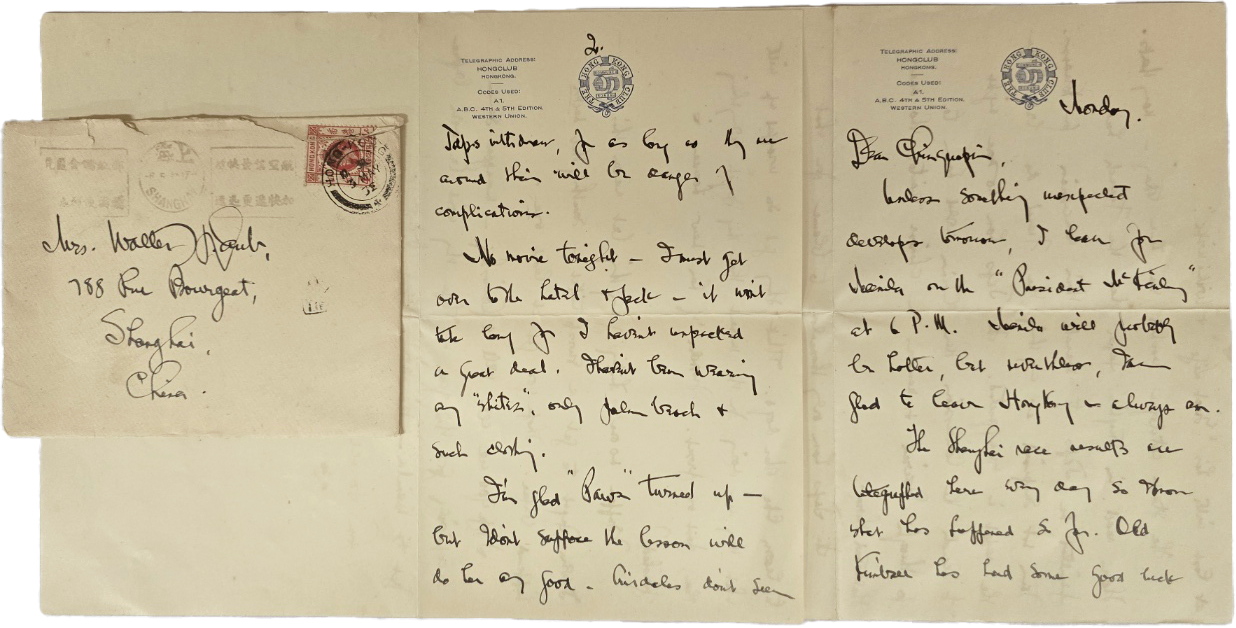 Mrs. Walter
788 Rue Bourgeat,
Shanghai,
China.
上海
SHANGHAI
HONG KONG
TELEGRAPHIC ADDRESS:
HONGCLUB
HONGKONG.
CODES USED:
A1.
A.B.C. 4TH & 5TH EDITION.
WESTERN UNION.
THE HONG KONG CLUB
Monday.
Dear Chinquapin,
Unless something unexpected
develops tomorrow, I leave for
Manila on the "President McKinley"
at 6 P.M. Manila will probably
be hotter, but nevertheless, I am
glad to leave HongKong – always am.
The Shanghai race results are
telegraphed here every day so I know
what has happened so far. Old
has had some good luck
2.
TELEGRAPHIC ADDRESS:
HONGCLUB
HONGKONG.
CODES USED:
A1.
A.B.C. 4TH & 5TH EDITION.
WESTERN UNION.
THE HONG KONG CLUB
Japs withdraw, for as long as they are
around there will be danger of
complications.
No movie tonight – I must get
over to the hotel & pack – it won't
take long for I haven't unpacked
a great deal. I haven't been wearing
any "whites", only palm beach &
such clothing.
I'm glad "Paws" turned up –
but I don't suppose the lesson will
do her any good – Airedales don't seem